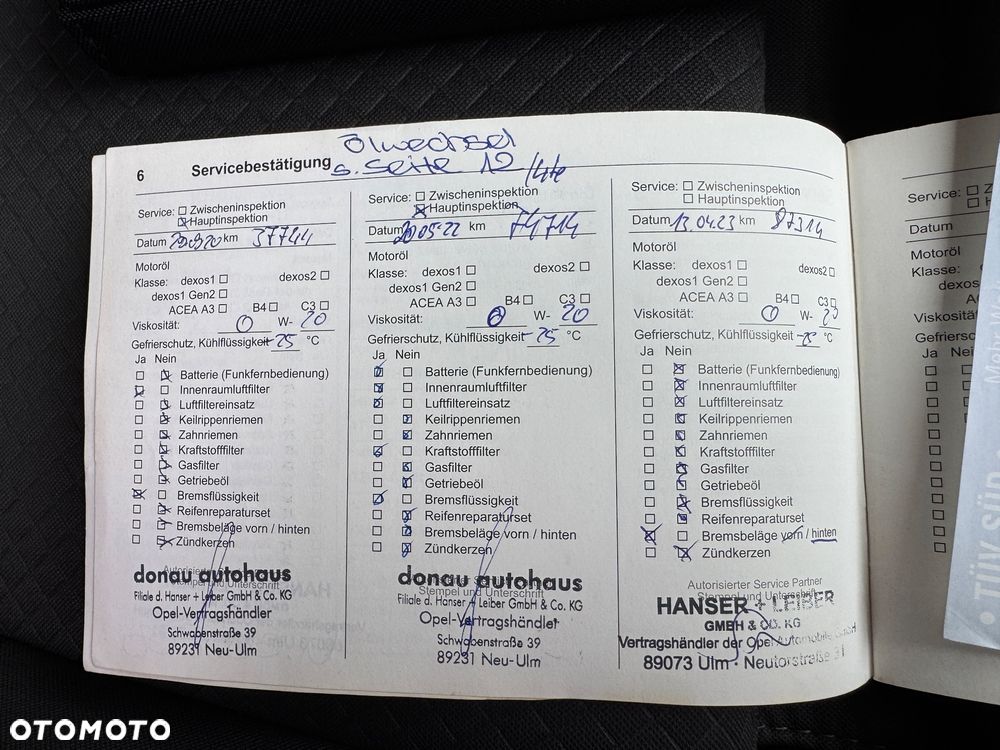 6 Servicebestätigung
Ölwechsel
s. Seite 12
Service: Zwischeninspektion
Hauptinspektion
Datum km 37744
Motoröl
Klasse: dexos1 dexos2
dexos1 Gen2
ACEA A3 B4 C3
Viskosität: 0 W- 20
Gefrierschutz, Kühlflüssigkeit -25 °C
Ja Nein
Batterie (Funkfernbedienung)
Innenraumluftfilter
Luftfiltereinsatz
Keilrippenriemen
Zahnriemen
Kraftstofffilter
Gasfilter
Getriebeöl
Bremsflüssigkeit
Reifenreparaturset
Bremsbeläge vorn / hinten
Zündkerzen
Autorisierter
Stempel und Unterschrift
donau autohaus
Filiale d. Hanser + Leiber GmbH & Co. KG
Opel-Vertragshändler
Schwabenstraße 39
89231 Neu-Ulm
Service: Zwischeninspektion
Hauptinspektion
Datum 20.05.22 km 74714
Motoröl
Klasse: dexos1 dexos2
dexos1 Gen2
ACEA A3 B4 C3
Viskosität: 0 W- 20
Gefrierschutz, Kühlflüssigkeit -25 °C
Ja Nein
Batterie (Funkfernbedienung)
Innenraumluftfilter
Luftfiltereinsatz
Keilrippenriemen
Zahnriemen
Kraftstofffilter
Gasfilter
Getriebeöl
Bremsflüssigkeit
Reifenreparaturset
Bremsbeläge vorn / hinten
Zündkerzen
Stempel und Unterschrift
donau autohaus
Filiale d. Hanser + Leiber GmbH & Co. KG
Opel-Vertragshändler
Schwabenstraße 39
89231 Neu-Ulm
Service: Zwischeninspektion
Hauptinspektion
Datum 13.04.23 km 87314
Motoröl
Klasse: dexos1 dexos2
dexos1 Gen2
ACEA A3 B4 C3
Viskosität: 0 W-
Gefrierschutz, Kühlflüssigkeit -25 °C
Ja Nein
Batterie (Funkfernbedienung)
Innenraumluftfilter
Luftfiltereinsatz
Keilrippenriemen
Zahnriemen
Kraftstofffilter
Gasfilter
Getriebeöl
Bremsflüssigkeit
Reifenreparaturset
Bremsbeläge vorn / hinten
Zündkerzen
Autorisierter Service Partner
Stempel und Unterschrift
HANSER + LEIBER
GMBH & CO. KG
Vertragshändler der Opel Automobile GmbH
89073 Ulm · Neutorstraße
Service:
Datum
Motoröl
Klasse:
Viskosität
Gefriersch
Ja Nei
TÜV Süd
OTOMOTO